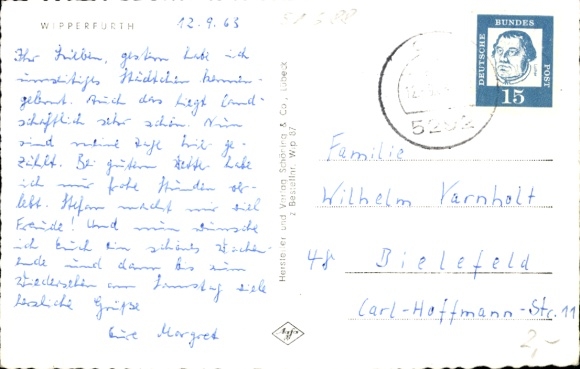 WIPPERFÜRTH
12.9.63
Ihr Lieben, gestern habe ich
umseitiges Städtchen kennen-
gelernt. Auch das liegt land-
schaftlich sehr schön. Nun
sind meine Tage hier ge-
zählt. Bei gutem Wetter habe
ich nur frohe Stunden ver-
lebt. Stefan macht mir viel
Freude! Und nun wünsche
ich Euch ein schönes Wochen-
ende und dann bis zum
Wiedersehen am Samstag viele
herzliche Grüße
Eure Margret
Hersteller und Verlag Schöning & Co., Lübeck
Bestellnr. Wip 87
Agfa
DEUTSCHE BUNDES POST
15
Familie
Wilhelm Varnholt
48 Bielefeld
Carl-Hoffmann-Str. 11
2,-